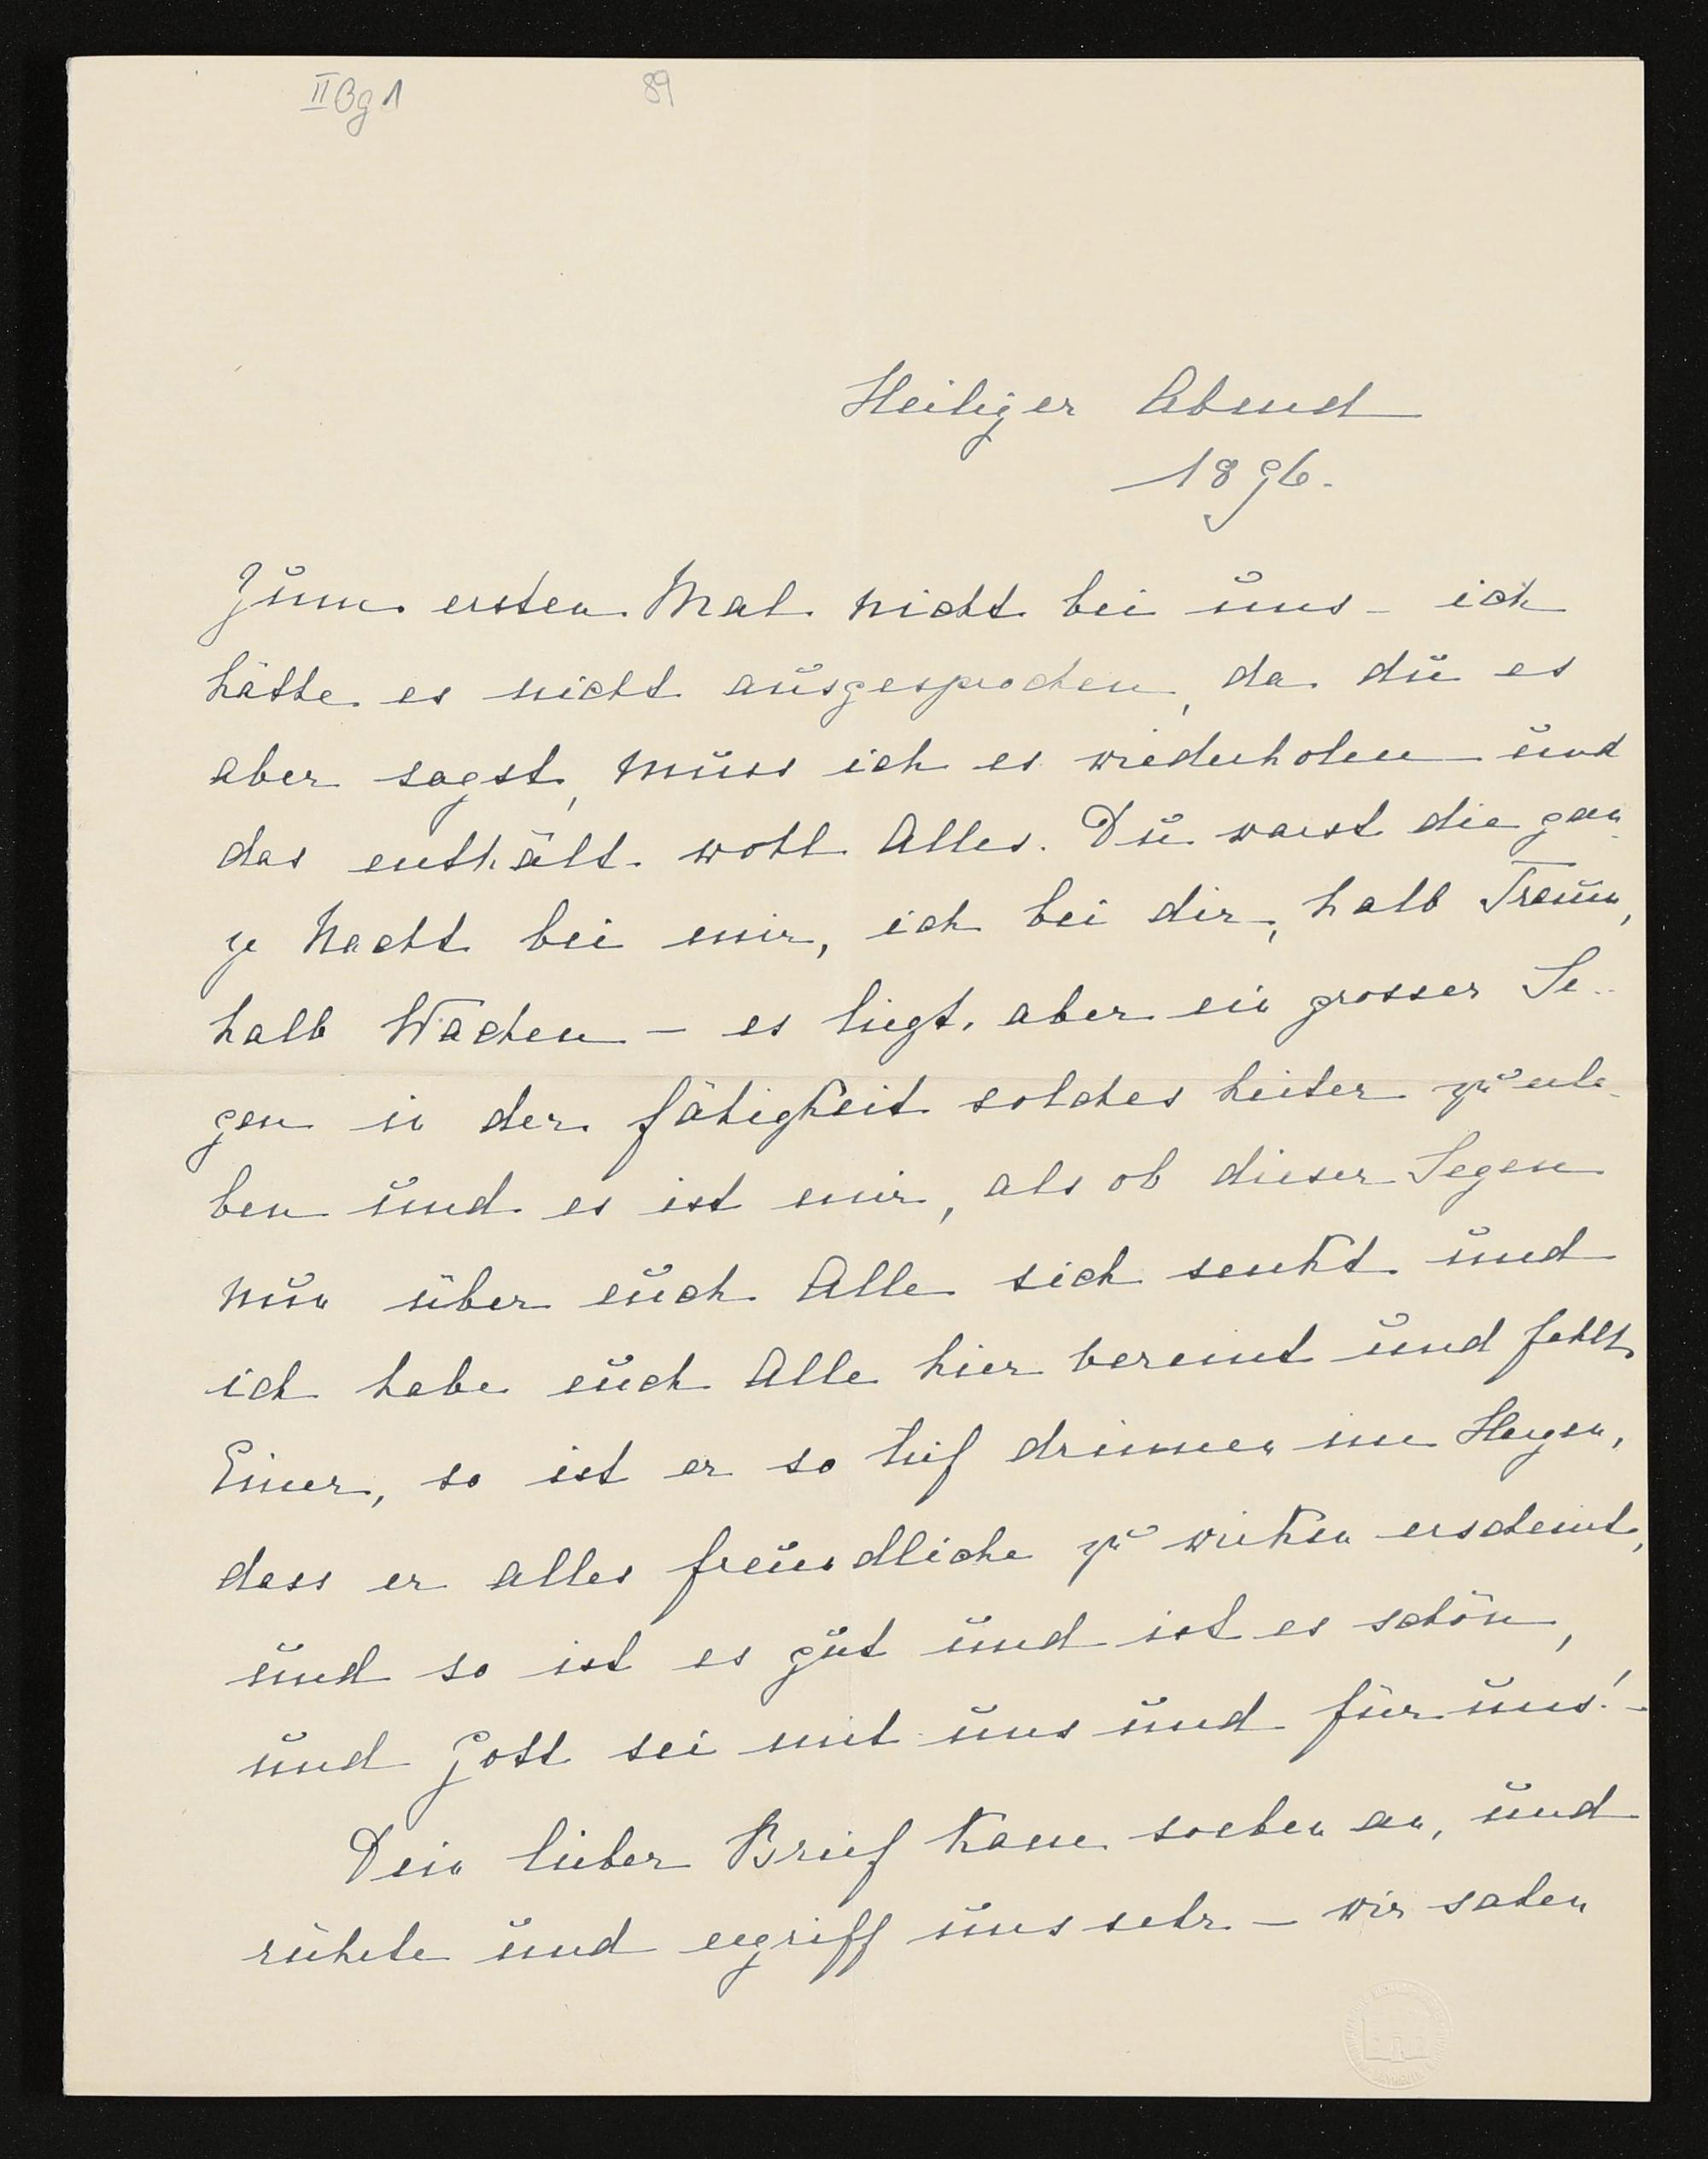 II Bg 1
89
Heiliger Abend
1896.
Zum ersten Mal nicht bei uns – ich
hätte es nicht ausgesprochen, da du es
aber sagst, muss ich es wiederholen und
das enthält wohl Alles. Du warst die gan
ze Nacht bei mir, ich bei dir, halb Traum,
halb Wachen – es liegt aber ein grosser Se-
gen in der Fähigkeit solches heiter zu erle-
ben und es ist mir, als ob dieser Segen
nun über euch Alle sich senkt und
ich habe euch Alle hier vereint und fehlt
Einer, so ist er so tief drinnen im Herzen,
dass er alles freundliche zu wirken erscheint,
und so ist es gut und ist es schön,
und Gott sei mit uns und für uns! –
Dein lieber Brief kam soeben an, und
rührte und ergriff uns sehr – wir sahen